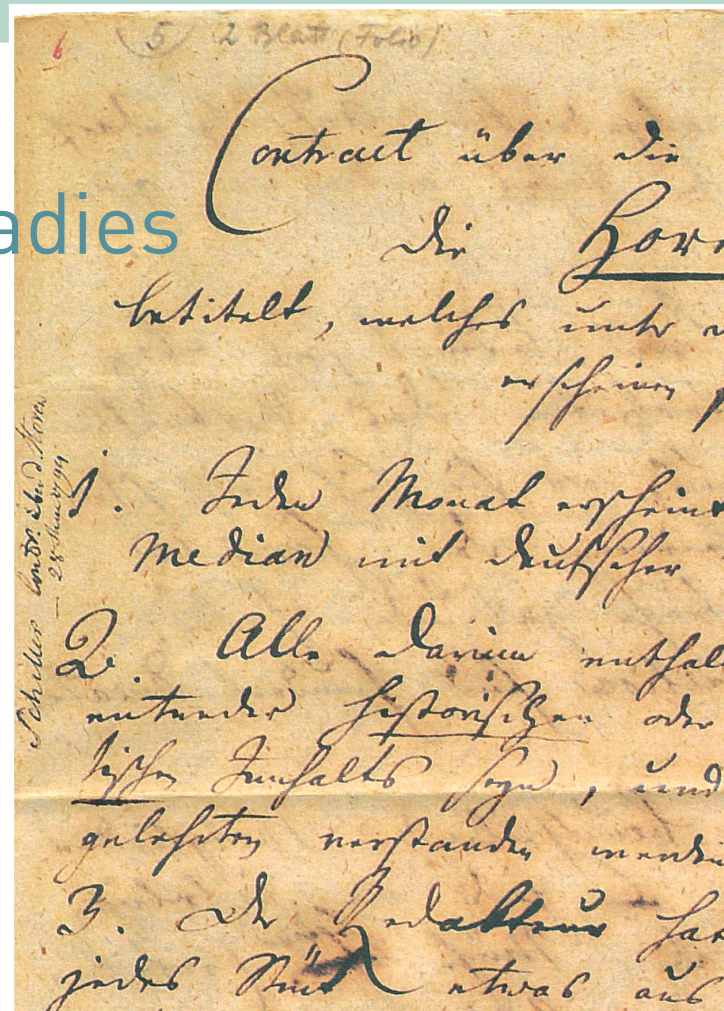 6 5 2 Blatt (Folio)
Contract über die
adies
die Hore
betitelt, welches unter
erscheinen
1. Jeden Monat erscheint
Median mit deutscher
2. Alle darinn enthal
entweder historischen oder
tischen Innhalts seyn, und
gelehrten verstanden werden
3. Der Redakteur hat
jedes Stück etwas aus
Schiller Contr. über d. Horen